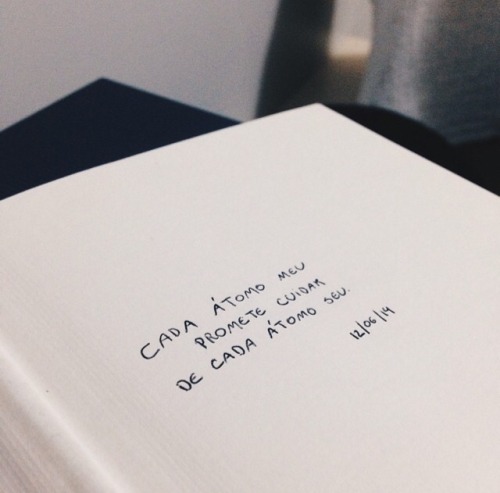 CADA ÁTOMO MEU
PROMETE CUIDAR
DE CADA ÁTOMO SEU.
12/06/14